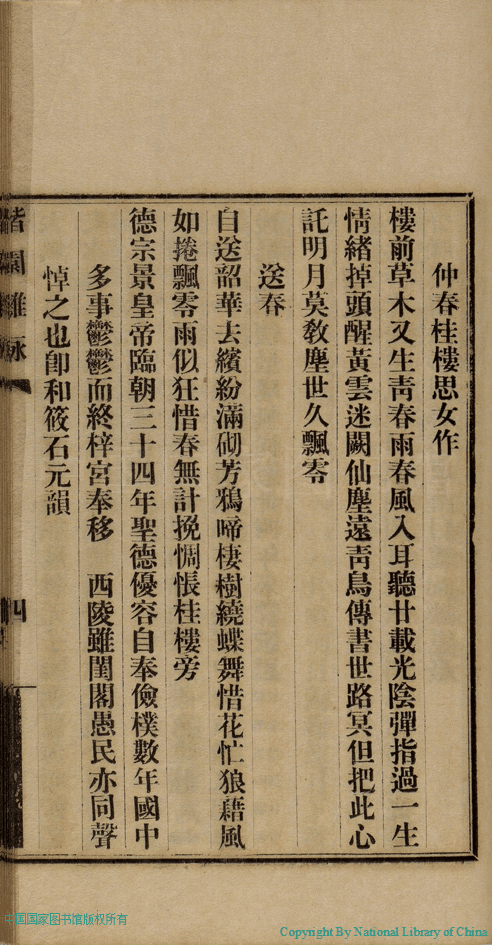 仲春桂樓思女作
樓前草木又生靑春雨春風入耳聽廿載光陰彈指過一生
情緒掉頭醒黃雲迷闕仙塵遠靑鳥傳書世路冥但把此心
託明月莫敎塵世久飄零
送春
自送韶華去繽紛滿砌芳鴉啼棲樹繞蝶舞惜花忙狼藉風
如捲飄零雨似狂惜春無計挽惆悵桂樓旁
德宗景皇帝臨朝三十四年聖德優容自奉儉樸數年國中
多事鬱鬱而終梓宮奉移　西陵雖閨閣愚民亦同聲
悼之也卽和筱石元韻
中国国家图书馆版权所有
Copyright By National Library of China